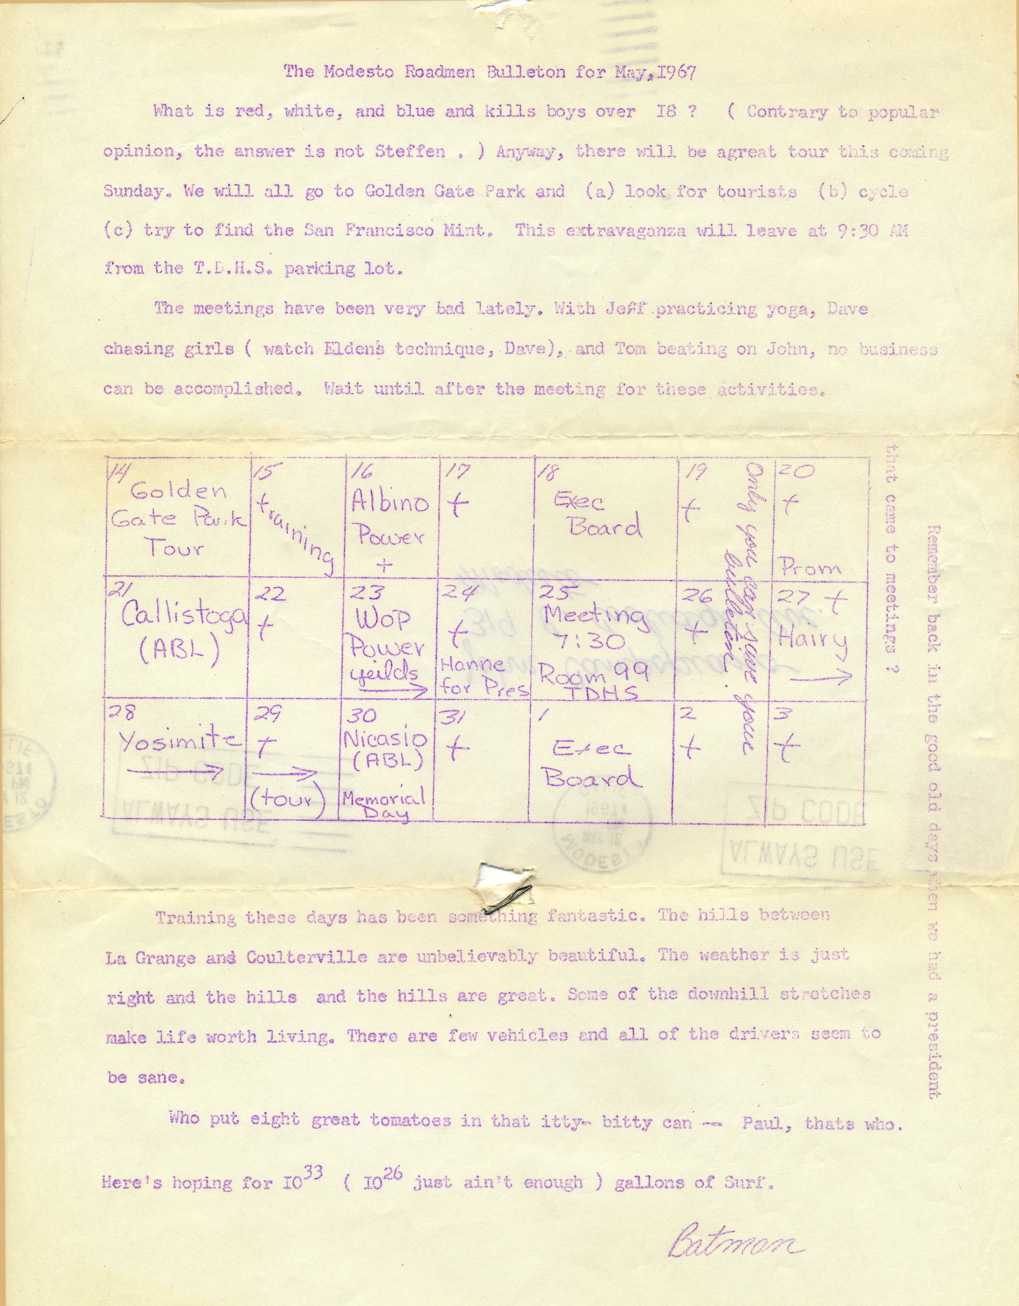 The Modesto Roadmen Bulleton for May, 1967
What is red, white, and blue and kills boys over 18 ? ( Contrary to popular
opinion, the answer is not Steffen . ) Anyway, there will be agreat tour this coming
Sunday. We will all go to Golden Gate Park and (a) look for tourists (b) cycle
(c) try to find the San Francisco Mint. This extravaganza will leave at 9:30 AM
from the T.D.H.S. parking lot.
The meetings have been very bad lately. With Jeff practicing yoga, Dave
chasing girls ( watch Elden's technique, Dave), and Tom beating on John, no business
can be accomplished. Wait until after the meeting for these activities.
14 Golden Gate Park Tour
15 + training
16 Albino Power +
17 +
18 Exec Board
19 +
20 + Prom
21 Callistoga (ABL)
22 +
23 WoP Power yeilds →
24 + Hanne for Pres
25 Meeting 7:30 Room 99 TDHS
26 +
27 + Hairy →
28 Yosimite →
29 + → (tour)
30 Nicasio (ABL) Memorial Day
31 +
1 Exec Board
2 +
3 +
Only you can save your
bulletin.
Remember back in the good old days when we had a president
that came to meetings ?
Training these days has been something fantastic. The hills between
La Grange and Coulterville are unbelievably beautiful. The weather is just
right and the hills and the hills are great. Some of the downhill stretches
make life worth living. There are few vehicles and all of the drivers seem to
be sane.
Who put eight great tomatoes in that itty- bitty can -- Paul, thats who.
Here's hoping for 10³³ ( 10²⁶ just ain't enough ) gallons of Surf.
Batman
ALWAYS USE
ZIP CODE
MODESTO
ALWAYS USE
ZIP CODE